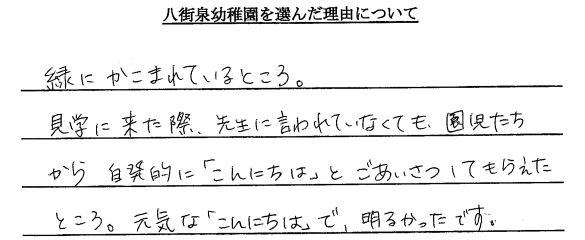 八街泉幼稚園を選んだ理由について
緑にかこまれているところ。
見学に来た際、先生に言われていなくても、園児たち
から自発的に「こんにちは」とごあいさつしてもらえた
ところ。元気な「こんにちは」で、明るかったです。